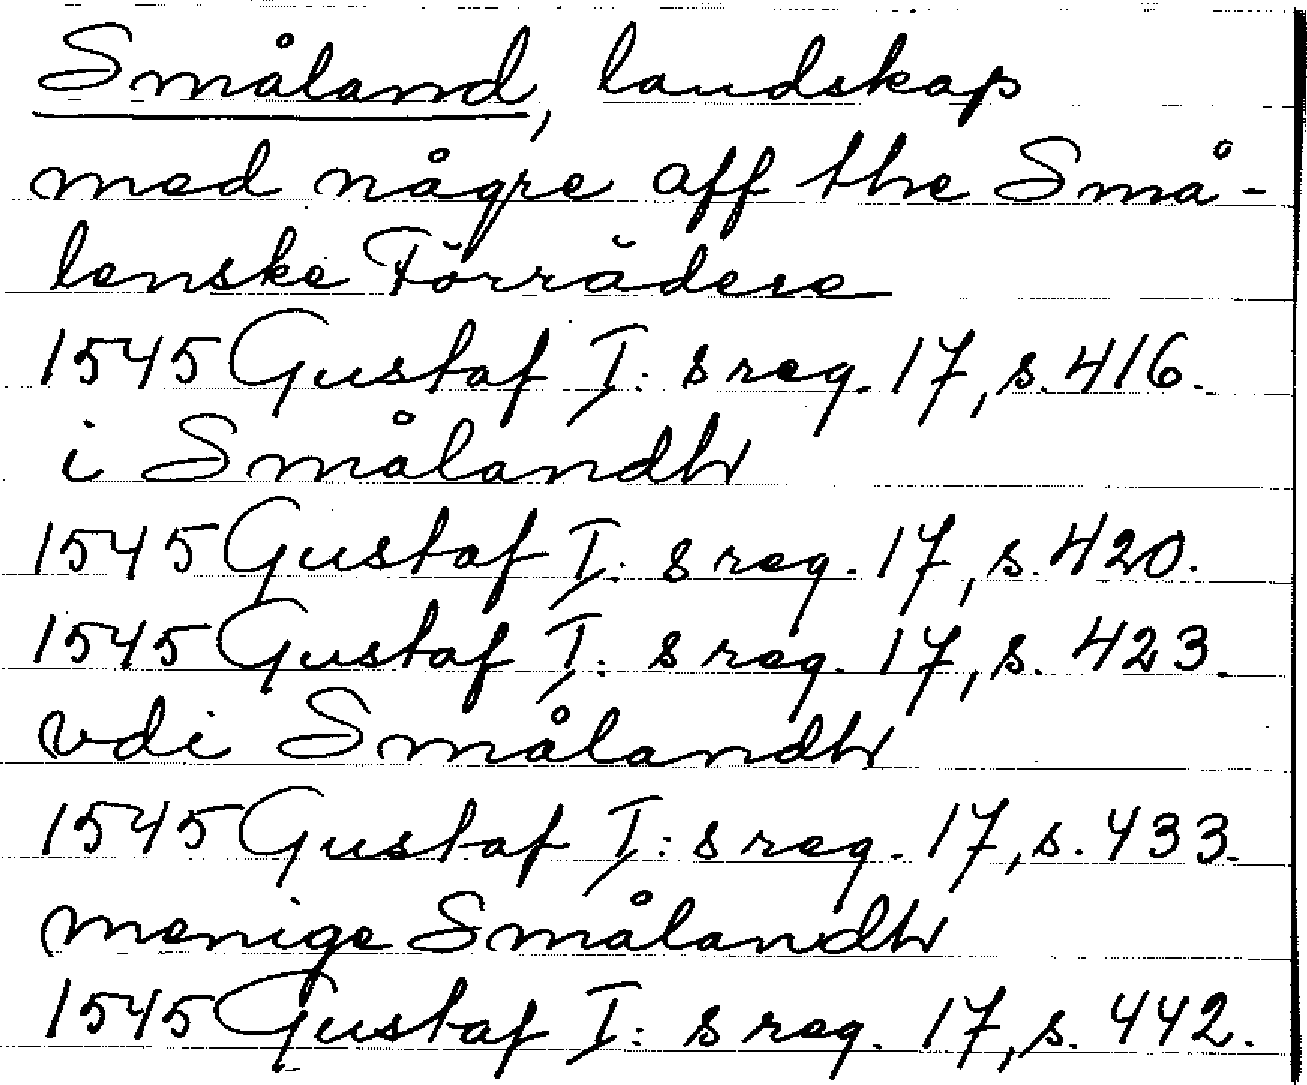 Småland, landskap
med någre aff the Små-
lenske Förrädere
1545 Gustaf I:s reg. 17, s. 416.
i Smålandh
1545 Gustaf I:s reg. 17, s. 420.
1545 Gustaf I:s reg. 17, s. 423.
vdi Smålandh
1545 Gustaf I:s reg. 17, s. 433.
menige Smålandh
1545 Gustaf I:s reg. 17, s. 442.